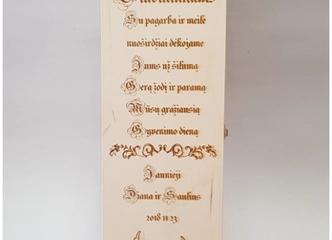 Su pagarba ir meile
nuoširdžiai dėkojame
Jums už šilumą
Gerą žodį ir paramą
Mūsų gražiausią
Gyvenimo dieną
Jaunieji
Diana ir Saulius
2018 11 23